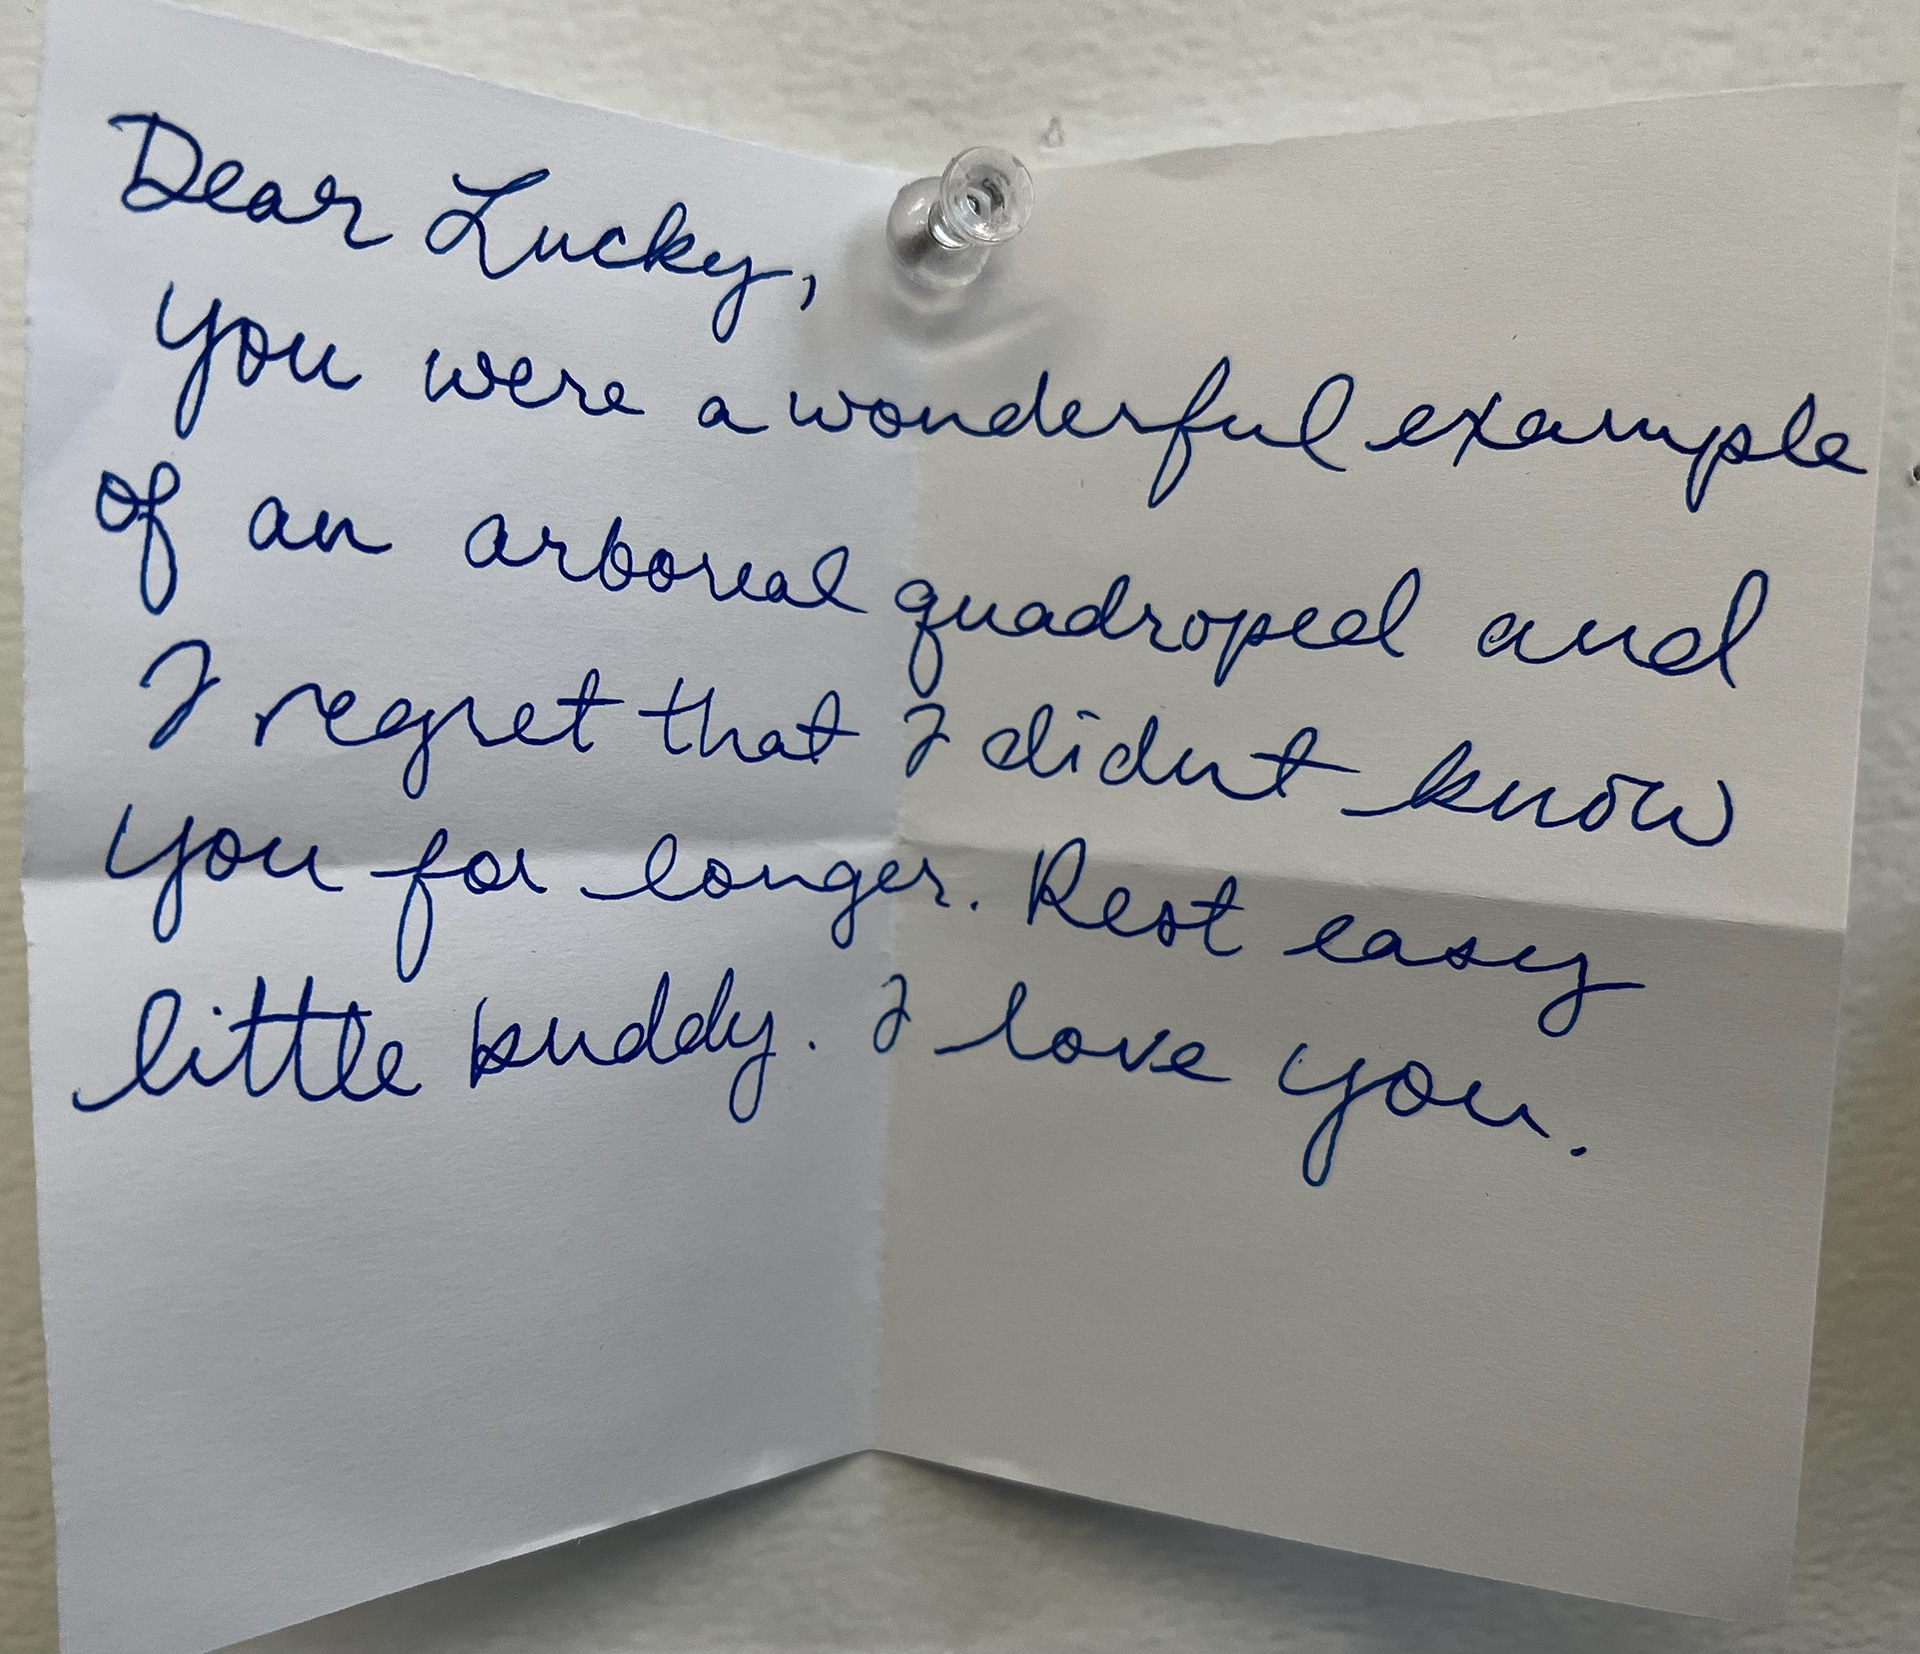 Dear Lucky,
you were a wonderful example
of an arboreal quadroped and
I regret that I didnt know
you for longer. Rest easy
little buddy. I love you.